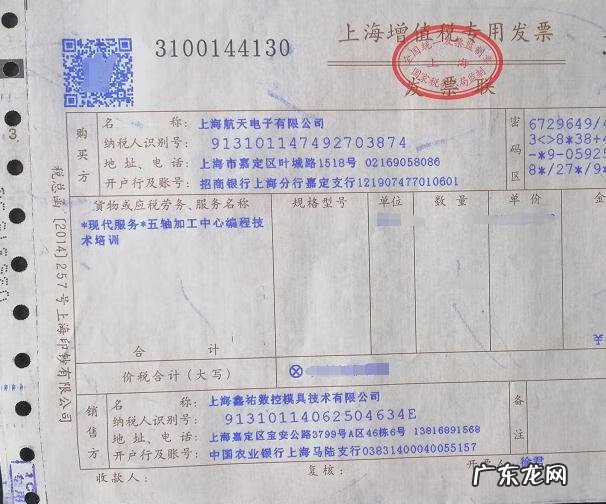 3100144130
上海增值税专用发票
全国统一发票监制章
上海
国家税务总局监制
发票联
购买方
名称：上海航天电子有限公司
纳税人识别号：913101147492703874
地址、电话：上海市嘉定区叶城路1518号 02169058086
开户行及账号：招商银行上海分行嘉定支行121907477010601
密码区
6729649/4
3<>8*38+4
-*9-05925
8*/27*/9*
货物或应税劳务、服务名称 规格型号 单位 数量 单价
*现代服务*五轴加工中心编程技
术培训
合计
价税合计（大写）
销售方
名称：上海鑫祐数控模具技术有限公司
纳税人识别号：91310114062504634E
地址、电话：上海嘉定区宝安公路3799号A区46栋6号 13816891568
开户行及账号：中国农业银行上海马陆支行03831400040055157
备注
收款人：
复核：
开票人：徐君
税总函[2014]257号上海印钞有限公司
广东龙网